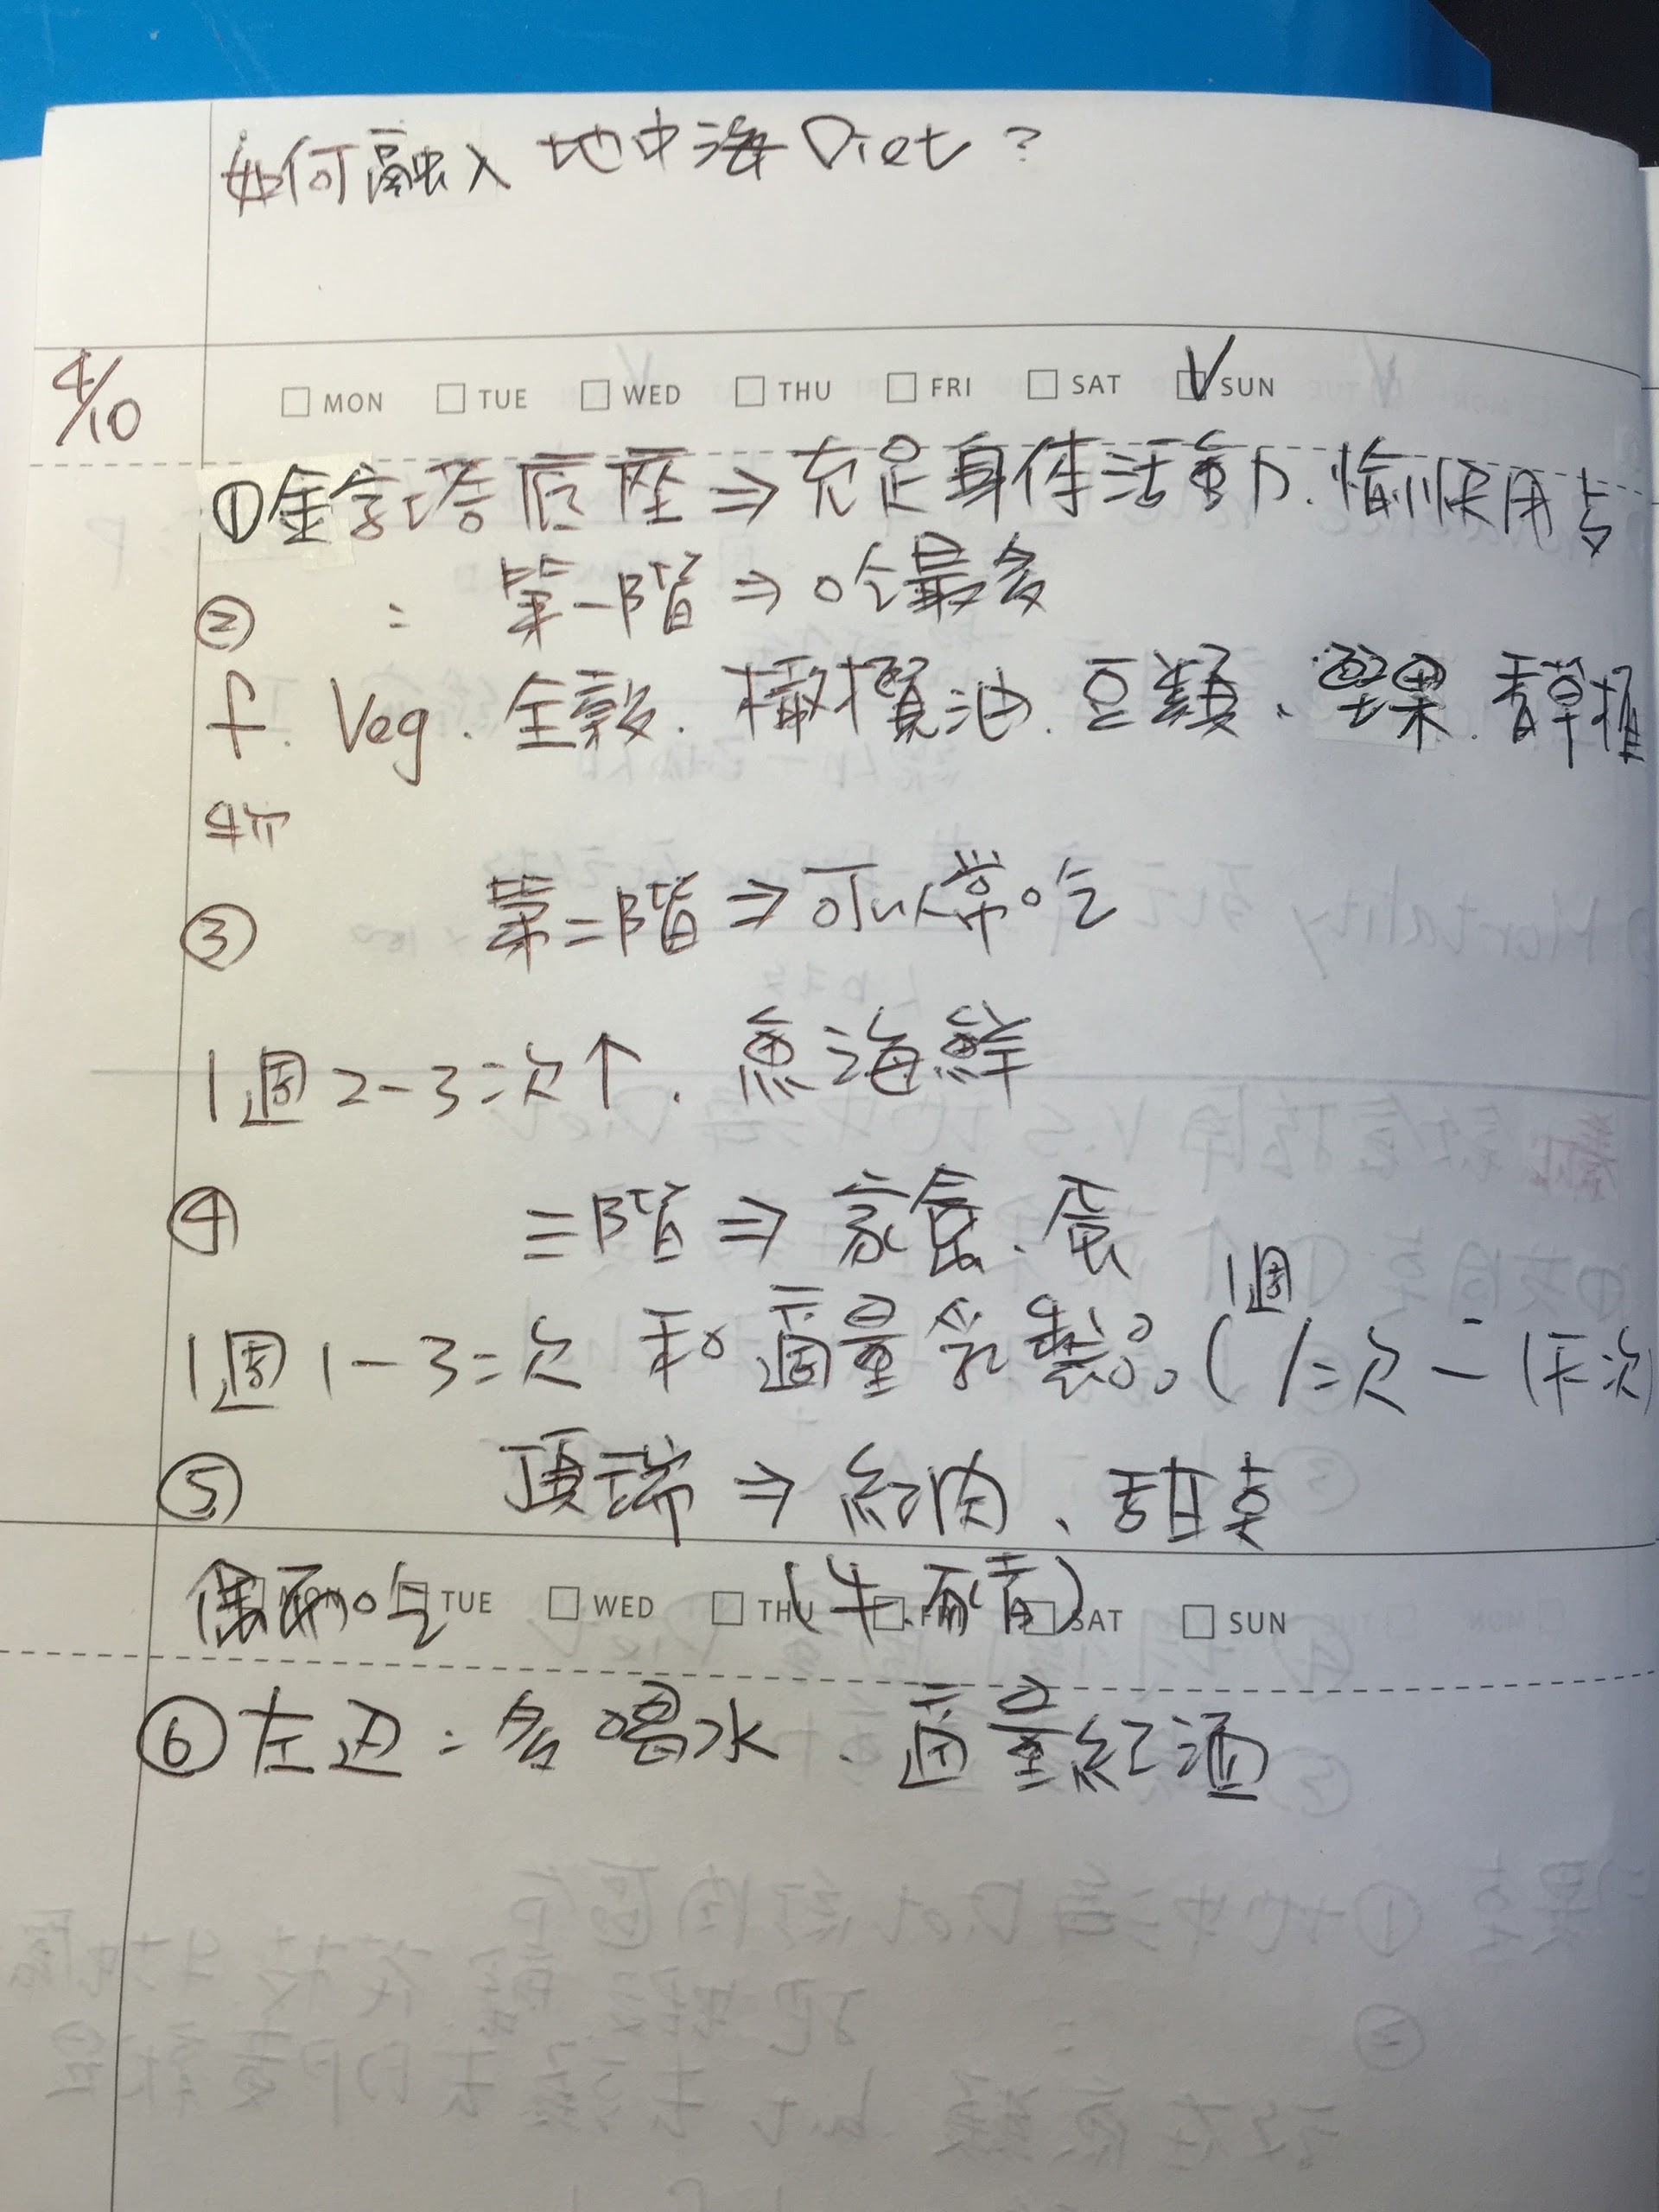 如何融入地中海Diet?
4/10
MON TUE WED THU FRI SAT SUN
①金字塔底座⇒充足身体活動.愉快用
② : 第一階⇒吃最多
f. Veg. 全穀. 橄欖油.豆類、堅果.香草植
物
③ 第二階⇒可以常吃
1週2-3次↑.魚海鮮
④ 三階⇒家禽、蛋
1週
1週1-3次 和適量乳製品(1次-1天次
⑤ 頂端⇒紅肉、甜
偶而吃 TUE WED THU (牛. SAT SUN
⑥左边:多喝水、適量紅酒